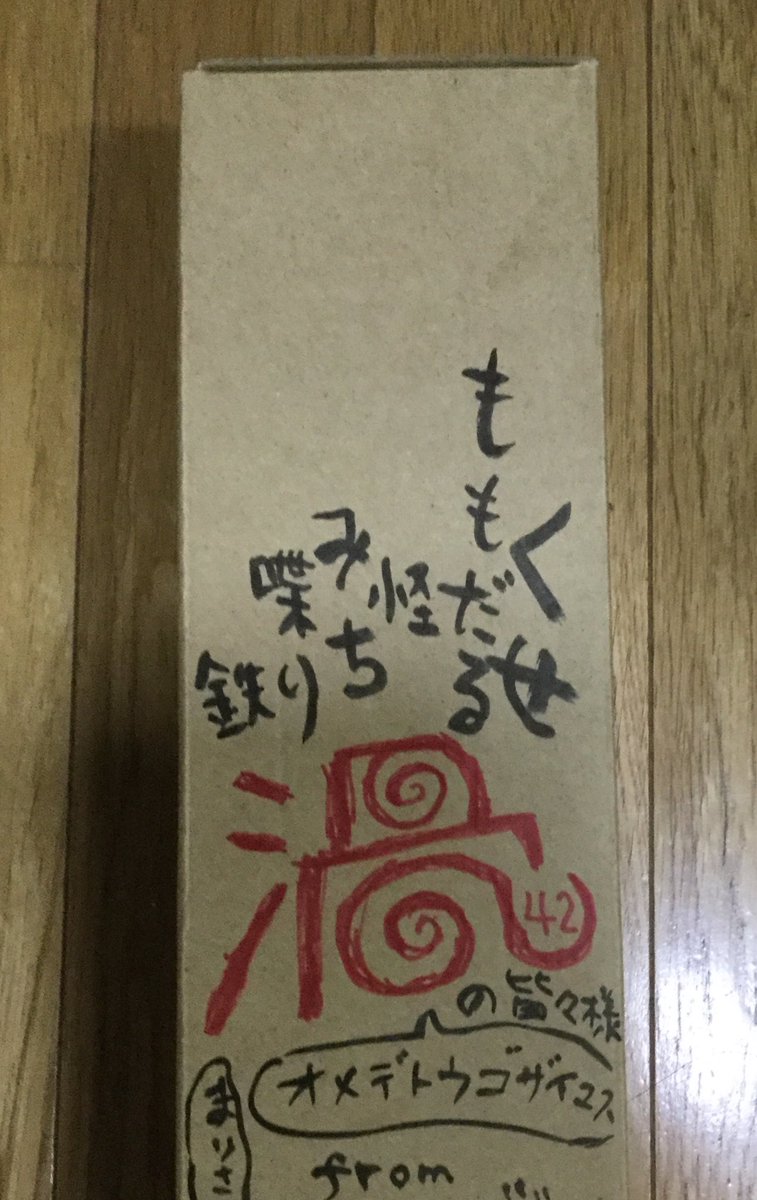 もも
くせ
だる
怪
みち
喋り
鉄
渦
42
の皆々様
オメデトウゴザイマス
from